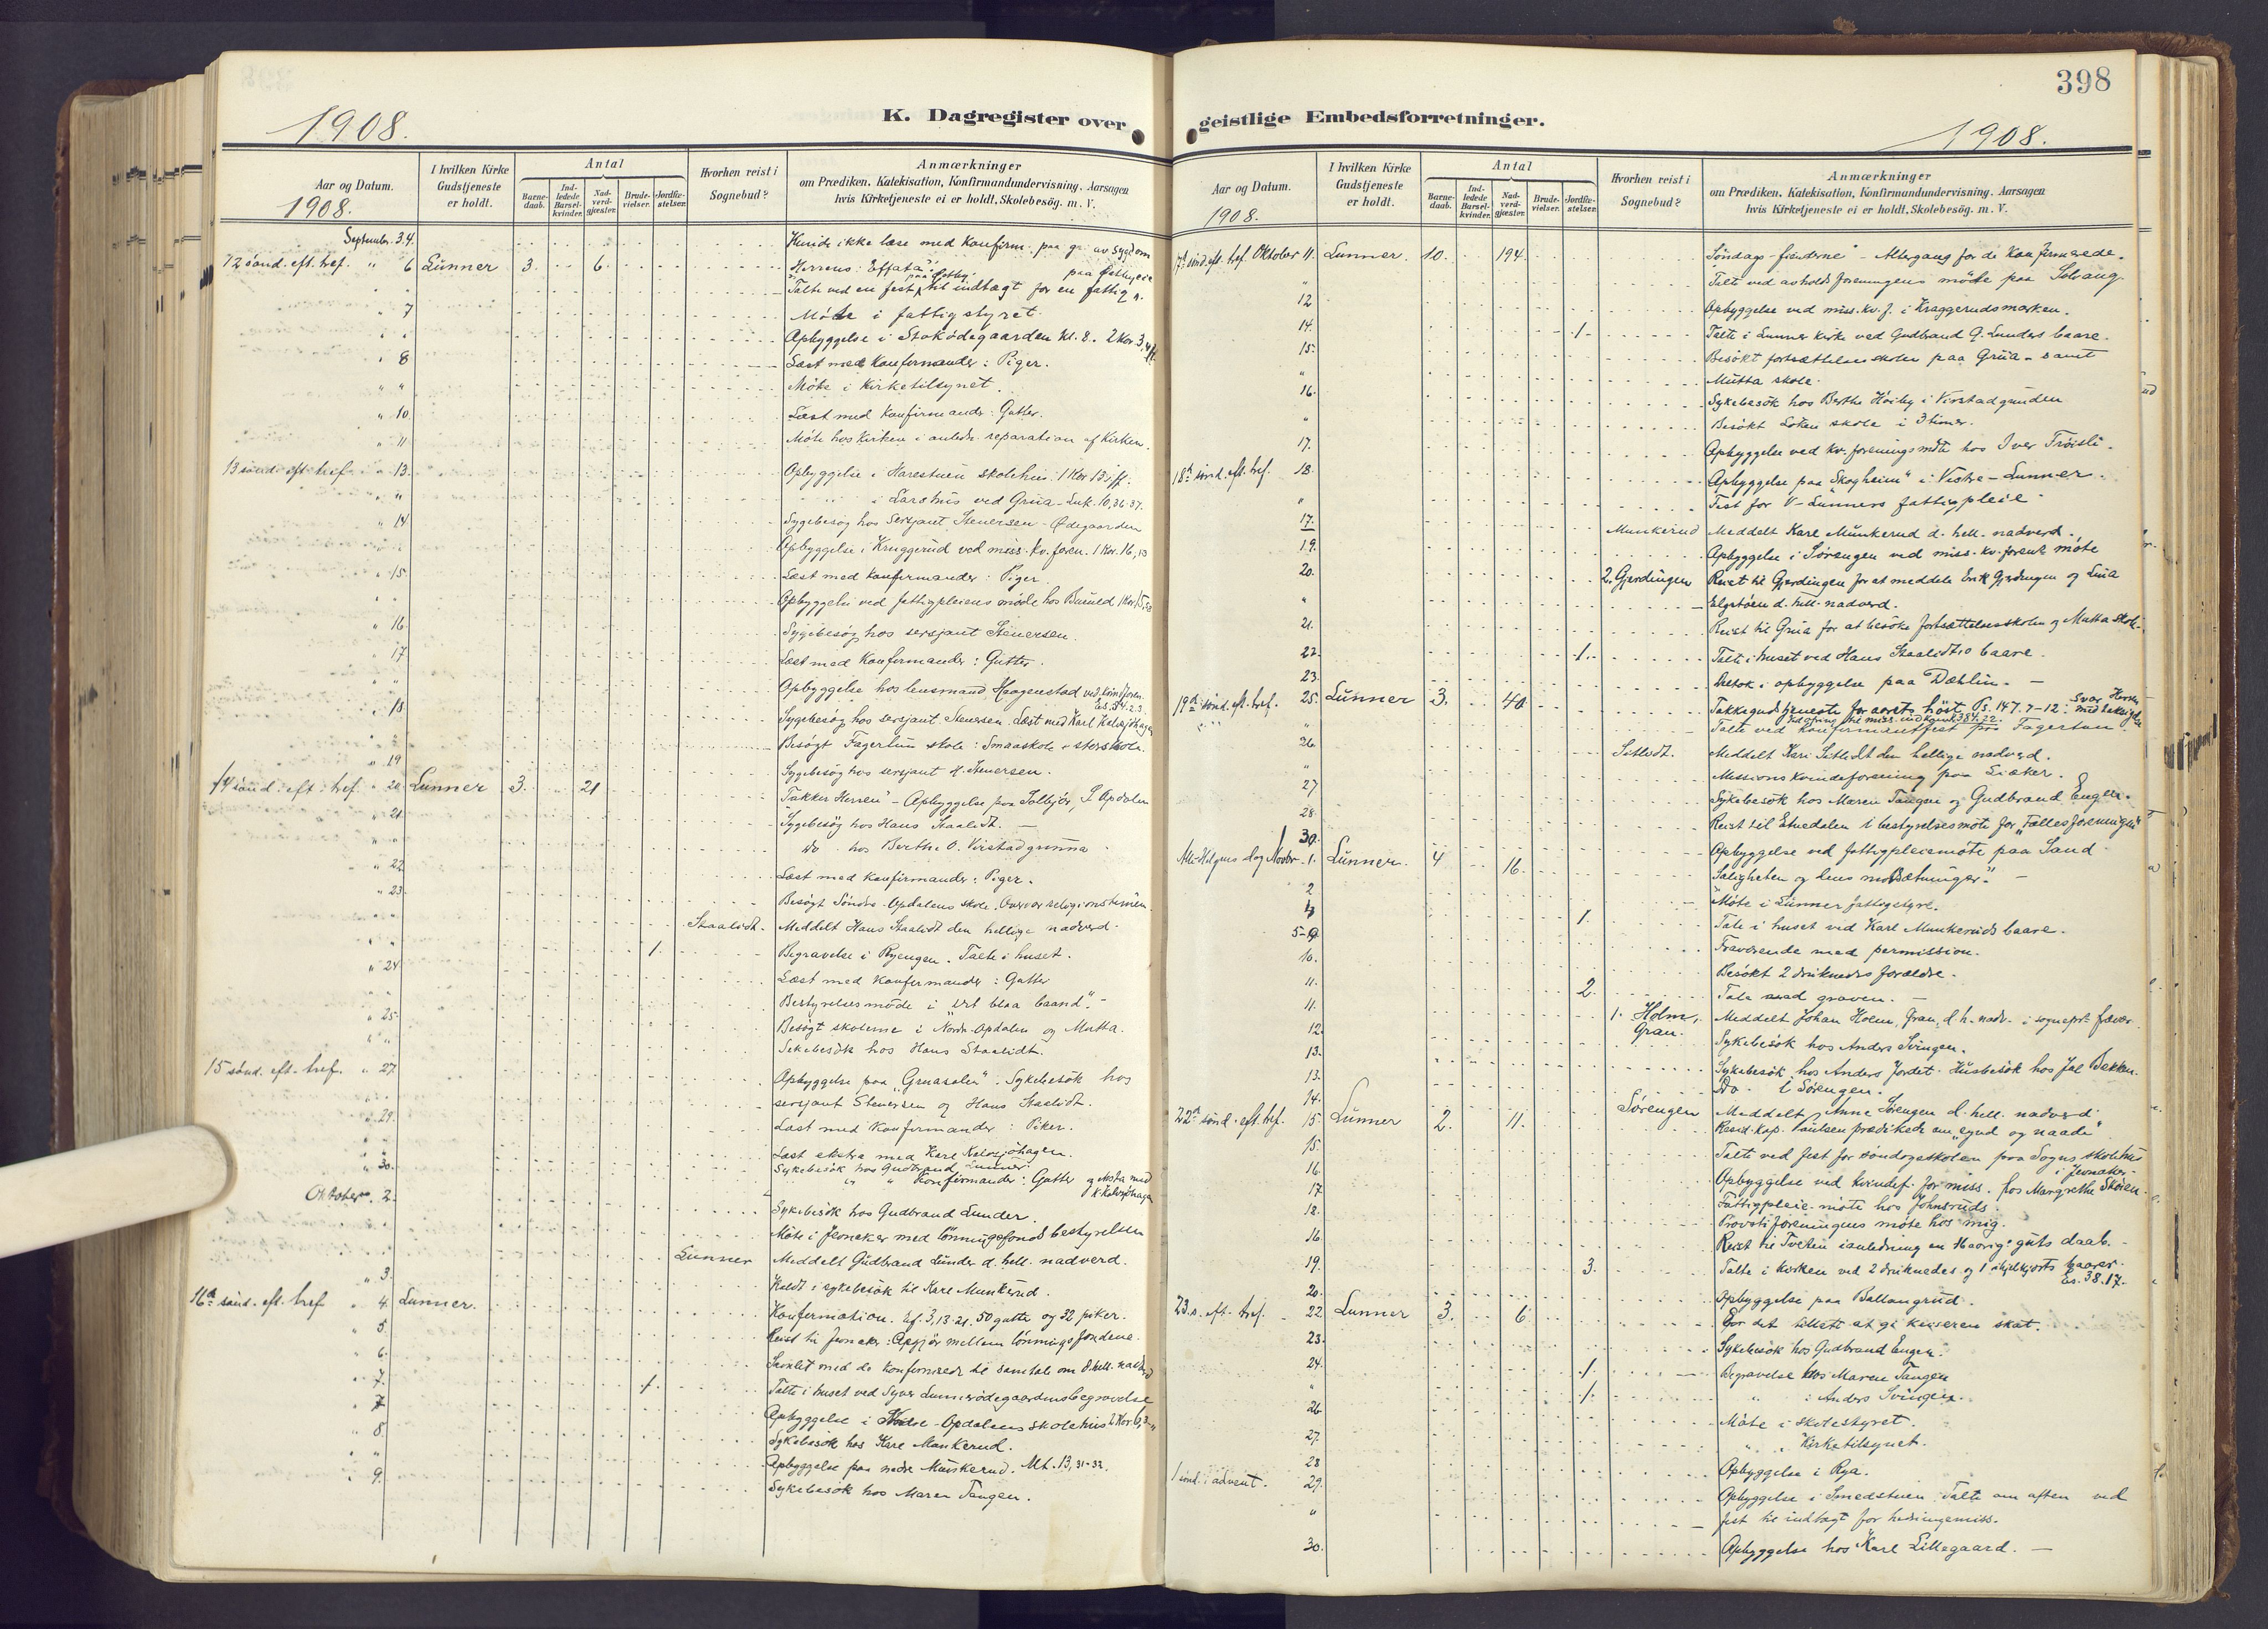 1908.
K. Dagregister over
Aar og Datum.
1908.
I hvilken Kirke Gudstjeneste er holdt.
Antal
Barne-daab.
Ind-ledede Barsel-kvinder.
Nad-verd-gjæster.
Brude-vielser.
Jordfæ-stelser.
Hvorhen reist i Sognebud?
Anmærkninger
om Prædiken, Katekisation, Konfirmandundervisning, Aarsagen
hvis Kirketjeneste ei er holdt, Skolebesög, m. V.
Septembr. 3.4. Kunde ikke læse med Konfirm. paa gr. av sygdom
12 sönd. eft. tref. " 6 Lunner 3. 6. Herrens: "Effata"!
Talte ved en fest til indtægt for en fattig
" 7 Möte i fattigstyret.
Opbyggelse i Kl. 8. 2 Kor. 3.
" 8 Læst med Konfirmander: Piger.
" " Möte i Kirketilsynet.
" 10. Læst med Konfirmander: Gutter.
" 11 Möte hos Kirken i anledn. reparation af Kirken.
13 sönd. eft. tref. " 13. Opbyggelse i Harestuen skolehus. 1 Kor. 13
" " i ved Grua - Luk. 10, 36-37.
" 14 Sygebesög hos Sersjant Stenersen - Ödegaarden
Opbyggelse i Kruggerud ved miss. kv. foren. 1 Kor. 16, 13
" 15. Læst med Konfirmander: Piger.
Opbyggelse ved fattigpleiens möde hos
" 16. Sygebesög hos sersjant Stenersen.
" 17 Læst med Konfirmander: Gutter.
" " Opbyggelse hos lensmand Haagenstad ved kvindforen.
" 18. Sygebesög hos sersjant Stenersen. Læst med Karl Kalvsjöhagen
Besögt Fagerlund skole: Smaaskole & storskole.
" 19 Sygebesög hos sersjant H. Stenersen.
14 sönd. eft. tref. " 20 Lunner 3. 21 "Takker Herren" - Opbyggelse paa Solbjör, S. Opdalen
" 21. Sygebesög hos Hans Staalidt. —
Do. hos Berthe O. Virstadgrunna
" 22 Læst med Konfirmander: Piger.
" 23. Besögt Söndre Opdalens skole. Overvar religionstimen.
" " Staalidt. Meddelt Hans Staalidt den hellige nadverd.
" " 1. Begravelse i Ryengen. Talte i huset.
" 24 Læst med Konfirmander: Gutter
Bestyrelsesmöde i "Det blaa baand". -
" 25. Besögt skolerne i Nordr. Opdalen og Mutta.
" " Sykebesök hos Hans Staalidt.
15 sönd. eft. tref. " 27. Opbyggelse paa "Gruasalen". Sykebesök hos
sersjant Stenersen og Hans Staalidt.
" 29. Læst med Konfirmander: Piker.
Læst ekstra med Karl Kalvsjöhagen.
" 30. Sykebesök hos Gudbrand Lunner
" " Konfirmander: Gutter og ekstra med K. Kalvsjöhagen
Oktober 2. Sykebesök hos Gudbrand Lunder.
Möte i Jevnaker med lönningsfonds bestyrelsen
Lunner Meddelt Gudbrand Lunder d. hell. nadverd.
" 3. Kaldt i sykebesök til Kare Munkerud.
16de sönd. eft. tref. " 4. Lunner. Konfirmation. Ef. 3, 13-21. 50 gutter og 32 piker.
" 5. Reist til Jevnaker. Opgjör mellem lönningsfondene.
" 6. Samlet med de konfirmerede til samtale om d. hell. nadverd
" 7. 1. Talte i huset ved Syver Lunnerödegaardens begravelse
" 7 Opbyggelse i Opdalens skolehus 2 Kor. 6, 3-
" 8. Sykebesök hos Kare Munkerud.
" " Opbyggelse paa nedre Munkerud. Mt. 13, 31-32.
" 9. Sykebesök hos Maren Tangen.
398
geistlige Embedsforretninger.
1908.
Aar og Datum.
1908.
I hvilken Kirke Gudstjeneste er holdt.
Antal
Barne-daab.
Ind-ledede Barsel-kvinder.
Nad-verd-gjæster.
Brude-vielser.
Jordfæ-stelser.
Hvorhen reist i Sognebud?
Anmærkninger
om Prædiken, Katekisation, Konfirmandundervisning, Aarsagen
hvis Kirketjeneste ei er holdt, Skolebesög, m. V.
17de sönd. eft. tref. Oktober 11. Lunner. 10. 194. Söndags-fienderne" - Altergang for de Konfirmerede.
" Talte ved avholdsforeningens möte paa Solvang.
12 Opbyggelse ved miss. kv. f. i Kraggerudsmarken.
14. 1. Talte i Lunner Kirke ved Gudbrand G. Lunders baare.
15. Besökt fortsættelsesskolen paa Grua - samt
" Mutta skole.
16. Sykebesök hos Berthe Höiby i Virstadgrunden
" Besökt Löken skole i 3 timer.
17. Opbyggelse ved kv. forenings möte hos Iver Tröisli.
18de sönd. eft. tref. 18. Opbyggelse paa "Skogheim" i Vestre-Lunner.
" Fest for V-Lunners fattigpleie.
17. Munkerud Meddelt Kare Munkerud d. hell. nadverd.
19. Opbyggelse i Sörengen ved miss. kv. foren. möte
20. 2. Gjerdingen Reist til Gjerdingen for at meddele Erik Gjerdingen og Lina
" Elgstöen d. hell. nadverd.
21. Reist til Grua for at besöke fortsættelsesskolen og Mutta skole.
22. 1. Talte i huset ved Hans Staalidts baare.
23. Deltok i opbyggelse paa Dæhlin. —
19de sönd. eft. tref. 25. Lunner 3. 40 Takkegudstjeneste for aarets höst. Ps. 147. 7-12: Svar Herren med taksigelse
" Talte ved Konfirmantfest paa Fagerlun.
26. Sitledt. Meddelt Kari Sitledt den hellige nadverd.
" Missionskvindeforening paa Liaker.
27 Sykebesök hos Maren Tangen og Gudbrand Engen.
28. Reist til Etnedalen i bestyrelsesmöte for "Fællesforeningen"
30. Opbyggelse ved fattigpleiemöte paa Sand
Alle Helgens dag Novbr. 1. Lunner. 4 16. "Saligheten og dens motsætninger." —
2 Möte i Lunner fattigstyre.
1. Tale i huset ved Karl Munkeruds baare.
5-9 Fraværende med permission.
10. Besökt 2 druknedes forældre.
11. 2. Tale ved graven. —
11. 1. Holm, Gran. Meddelt Johan Holm, Gran, d. h. nadv. i sogneprs. fravær
12. Sykebesök hos Anders Svingen.
13. Sykebesök hos Anders Jordet. Husbesök hos Jol Bekken.
13. Do. i Sörengen.
14. Sörengen Meddelt Anne Sörengen d. hell. nadverd
22de sönd. eft. tref. 15. Lunner 2. 11. Resid. kap. Paulsen prædikede om "synd og naade".
15. Talte ved fest for söndagsskolen paa Sogns skolehus i Jevnaker.
16 Opbyggelse ved kvindef. for miss. hos Margrethe Sköien.
17 Fattigpleie-möte hos Johnsruds.
18. Provstiforeningens möte hos mig.
16 Reist til Tveten i anledning en Haavigs guts daab. -
19. 3. Talte i kirken ved 2 druknedes og 1 ihjelkjörts baarer. Es. 38. 17.
20. Opbyggelse paa Ballangrud.
23. s. eft. tref. 22. Lunner 3. 6. Gör det tillatt at gi keiseren skat.
23. Sykebesök hos Gudbrand Engen.
24. 1. Begravelse hos Maren Tangen
" 1. " : Anders Svingen.
26 Möte i skolestyret.
27. " " Kirketilsynet.
28 Opbyggelse i Rya.
1 sönd. i advent. 29. Opbyggelse i Smedstuen. Talte om aften ved
" fest til indtægt for hedningemiss.
30. Opbyggelse hos Karl Lillegaard. —